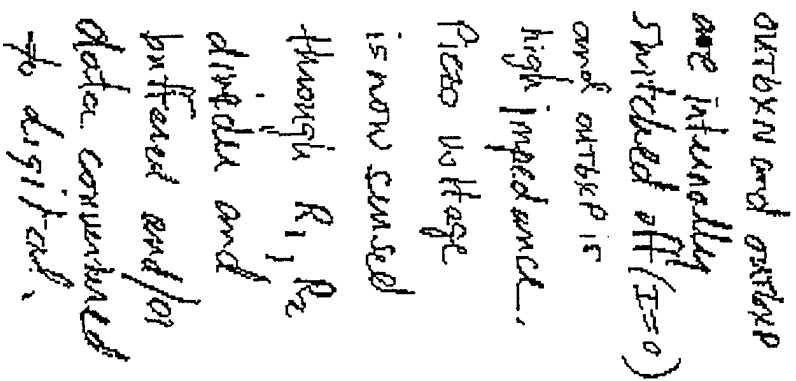 OUTBXN and OUTBXP
are internally
switched off (I=0)
and OUTBXP is
high impedance.
Piezo voltage
is now sensed
through R1, R2
divider and
buffered and/or
data converted
to digital.